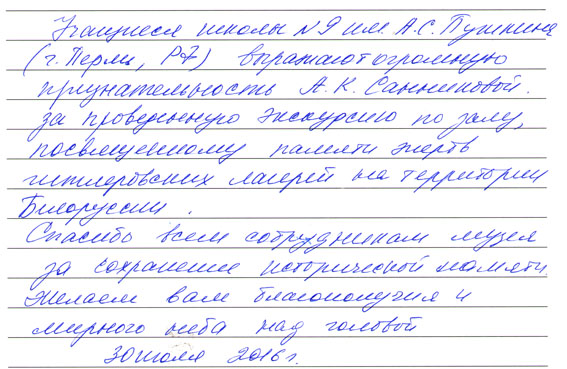 Учащиеся школы №9 им. А.С. Пушкина
(г. Перми, РФ) выражают огромную
признательность А.К. Санниковой.
за проведенную экскурсию по залу,
посвященному памяти жертв
гитлеровских лагерей на территории
Белоруссии.
Спасибо всем сотрудникам музея
за сохранение исторической памяти
Желаем вам благополучия и
мирного неба над головой
30 июля 2016 г.